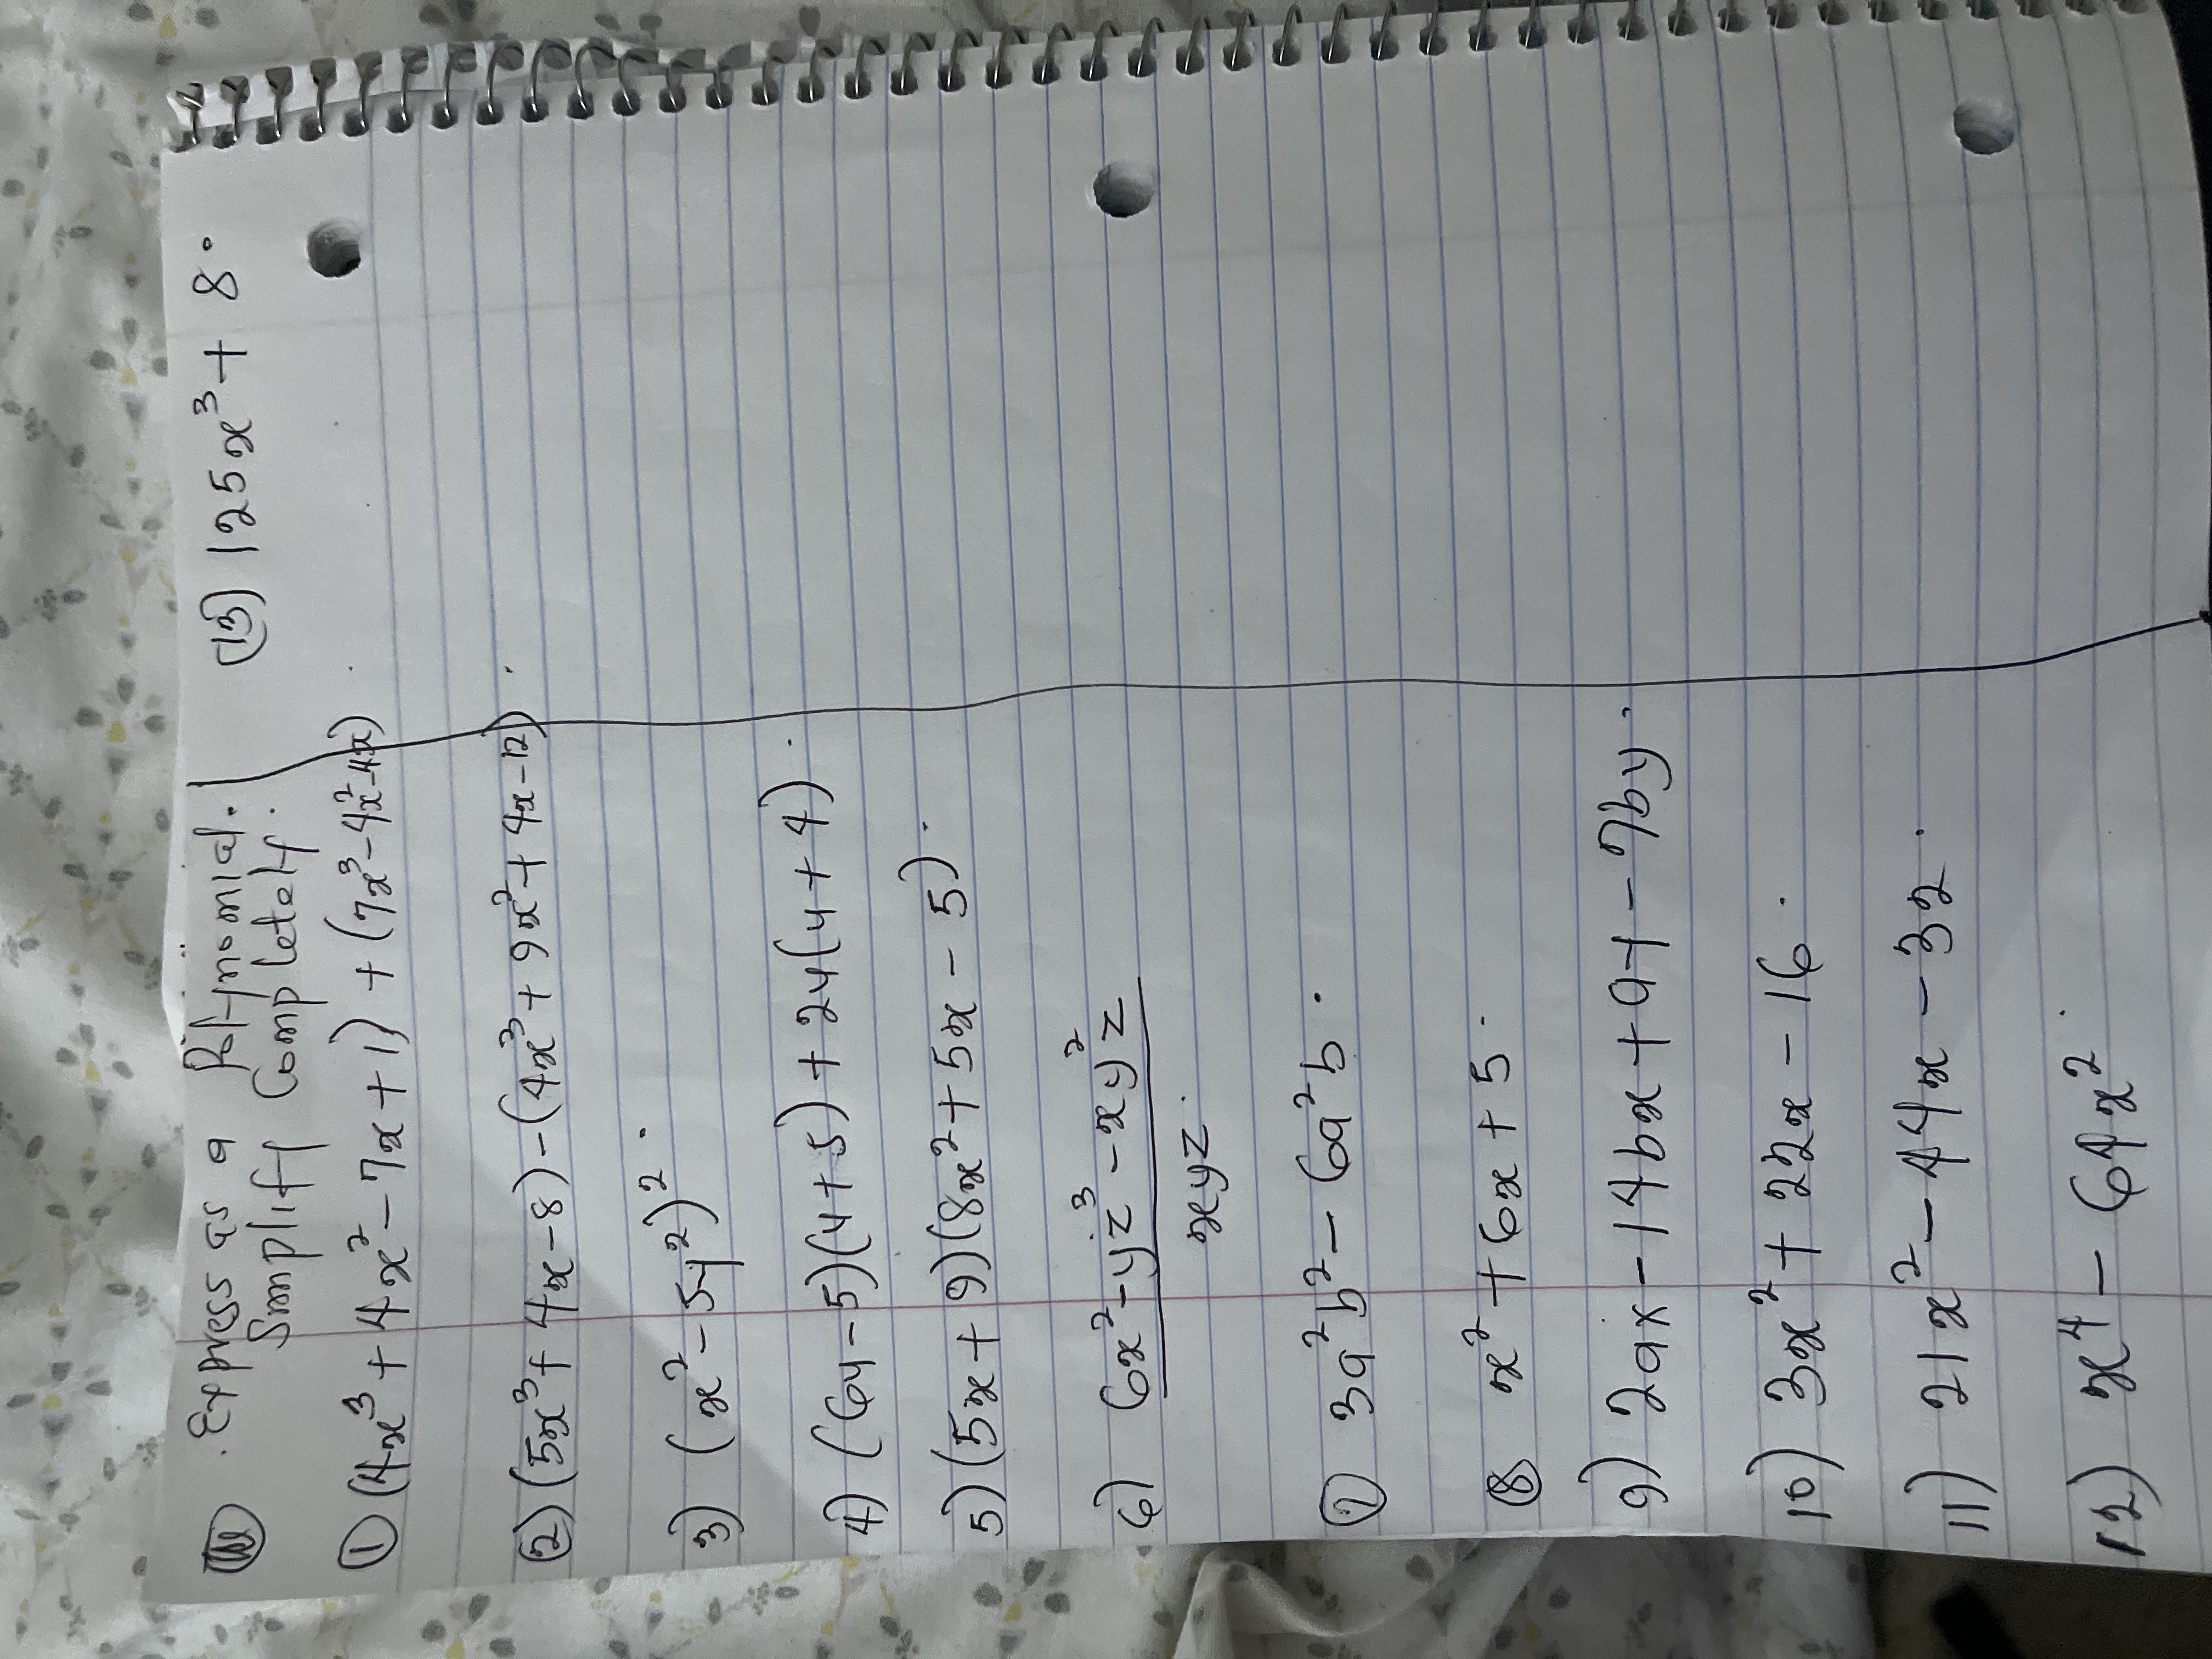 Express as a Polynomial.
Simplify Completely.
① (4x³ + 4x² - 7x + 1) + (7x³ - 4x² - 4x)
2) (5x³ + 4x - 8) - (4x³ + 9x² + 4x - 12)
3) (x² - 5y²)²
4) (6y - 5)(y + 5) + 2y(y + 4)
5) (5x + 9)(8x² + 5x - 5)
6) 6x² - yz³ - xy²z
xyz
⑦ 3a²b² - 6a²b
⑧ x² + 6x + 5
9) 2ax - 14bx + ay - 7by
10) 3x² + 22x - 16
11) 21x² - 44x - 32
12) x⁴ - 64x²
(13) 125x³ + 8